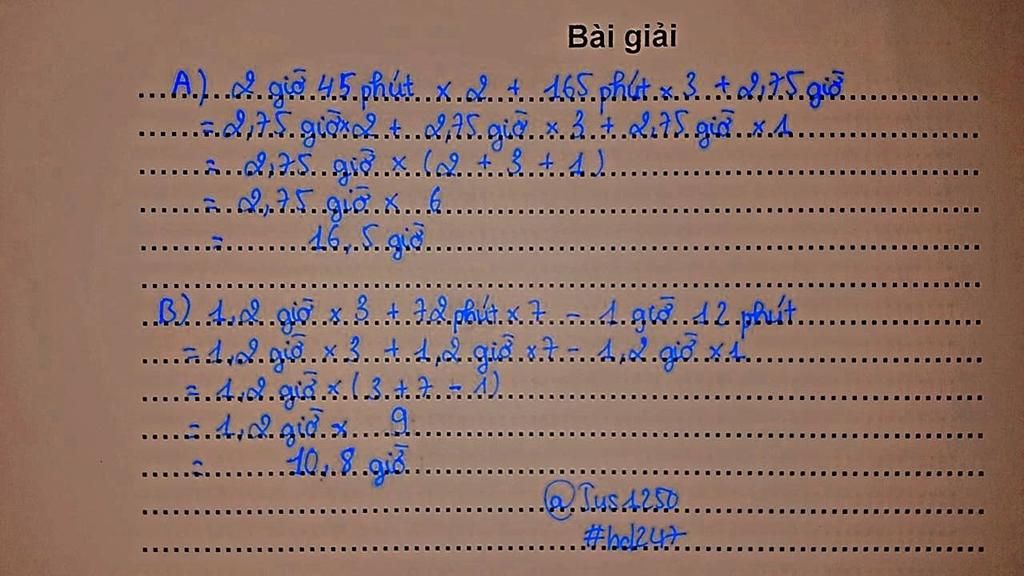 Bài giải
A) 2 giờ 45 phút x 2 + 165 phút x 3 + 2,75 giờ
= 2,75 giờ x 2 + 2,75 giờ x 3 + 2,75 giờ x 1
= 2,75 giờ x (2 + 3 + 1)
= 2,75 giờ x 6
= 16,5 giờ
B) 1,2 giờ x 3 + 72 phút x 7 - 1 giờ 12 phút
= 1,2 giờ x 3 + 1,2 giờ x 7 - 1,2 giờ x 1
= 1,2 giờ x (3 + 7 - 1)
= 1,2 giờ x 9
= 10,8 giờ
@Tus1250
#hd247